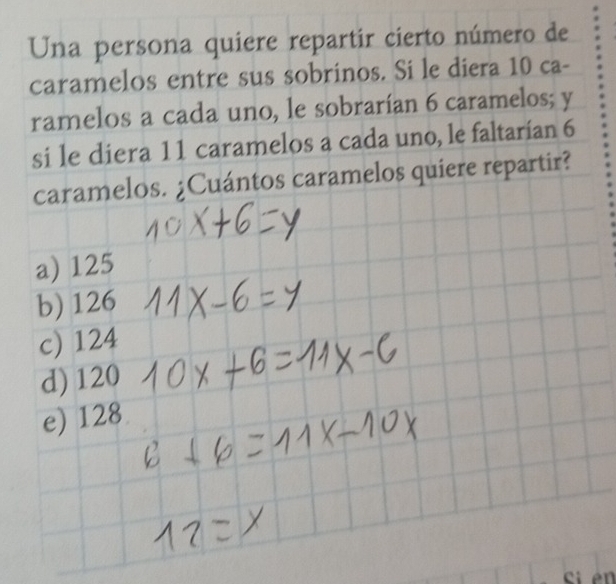 Una persona quiere repartir cierto número de
caramelos entre sus sobrinos. Si le diera 10 ca-
ramelos a cada uno, le sobrarían 6 caramelos; y
si le diera 11 caramelos a cada uno, le faltarían 6
caramelos. ¿Cuántos caramelos quiere repartir?
10x+6=y
a) 125
b) 126 11x-6=y
c) 124
d) 120 10x+6=11x-6
e) 128
6+6=11x-10x
12=x
Si en